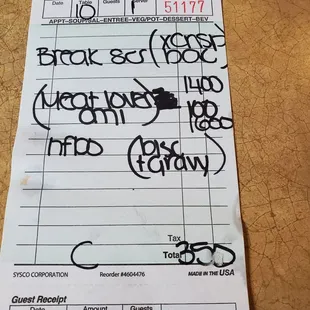 Date Table Guests Server
10 1 51177
APPT-SOUP/SAL-ENTREE-VEG/POT-DESSERT-BEV
Break scr (xcnsp
bac
1400
(Meat lover 100
omi) 1600
nfbo (bisc
+gravy)
C
Tax
Total 350
SYSCO CORPORATION Reorder #4604476 MADE IN THE USA
Guest Receipt
Date Amount Guests